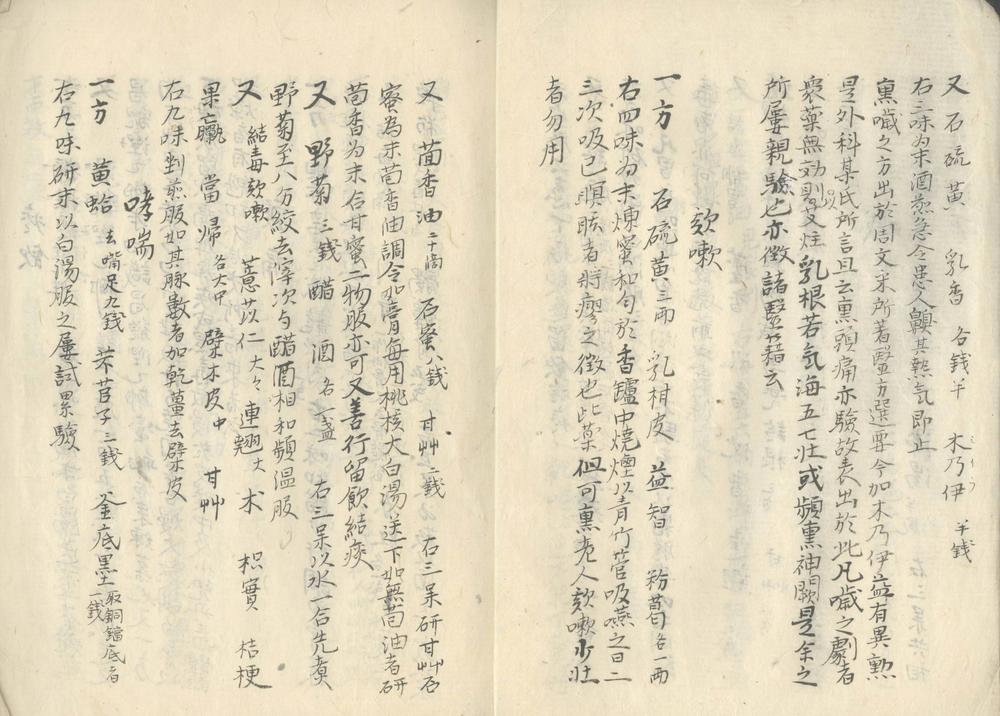 又 石硫黄 乳香 各銭半 木乃伊 半銭
右三味為末酒煎急令患人齅其熱気即止
熏噦之方出於周文采所著醫方選要今加木乃伊益有異勲
是外科某氏所言且云熏頭痛亦驗故表出於此凡噦之劇者
衆薬無効則以艾炷乳根若気海五七壮或頻熏神闕是余之
所屡親驗也亦徴諸醫籍云
欬嗽
一方 石硫黄三両 乳柑皮 益智 粉葛各一両
右四味為末煉蜜和勻於香鑪中焼煙以青竹管吸嚥之日二
三次吸已瞑眩者將瘳之徴也此薬但可熏老人欬嗽少壮
者勿用
又 茴香油二十滴 石蜜八銭 甘艸二銭 右三味研甘艸石
蜜為末茴香油調令如膏毎用桃核大白湯送下如無茴油者研
茴香為末合甘蜜二物服亦可又善行留飲結痰
又方 野菊三銭 醋 酒各一盞 右三味以水一合先煮
野菊至八分絞去滓次勻醋酒相和頻温服
又 結毒欬嗽 薏苡仁大々 連翹大 木 枳實 桔梗
果蠃 當帰各大中 檗木皮中 甘艸
右九味剉煎服如其脉數者加乾薑去檗皮
哮喘
一方 黄蛤去嘴足九銭 芣苢子三銭 釜底墨取銅鐺底者一銭
右九味研末以白湯服之屡試累驗